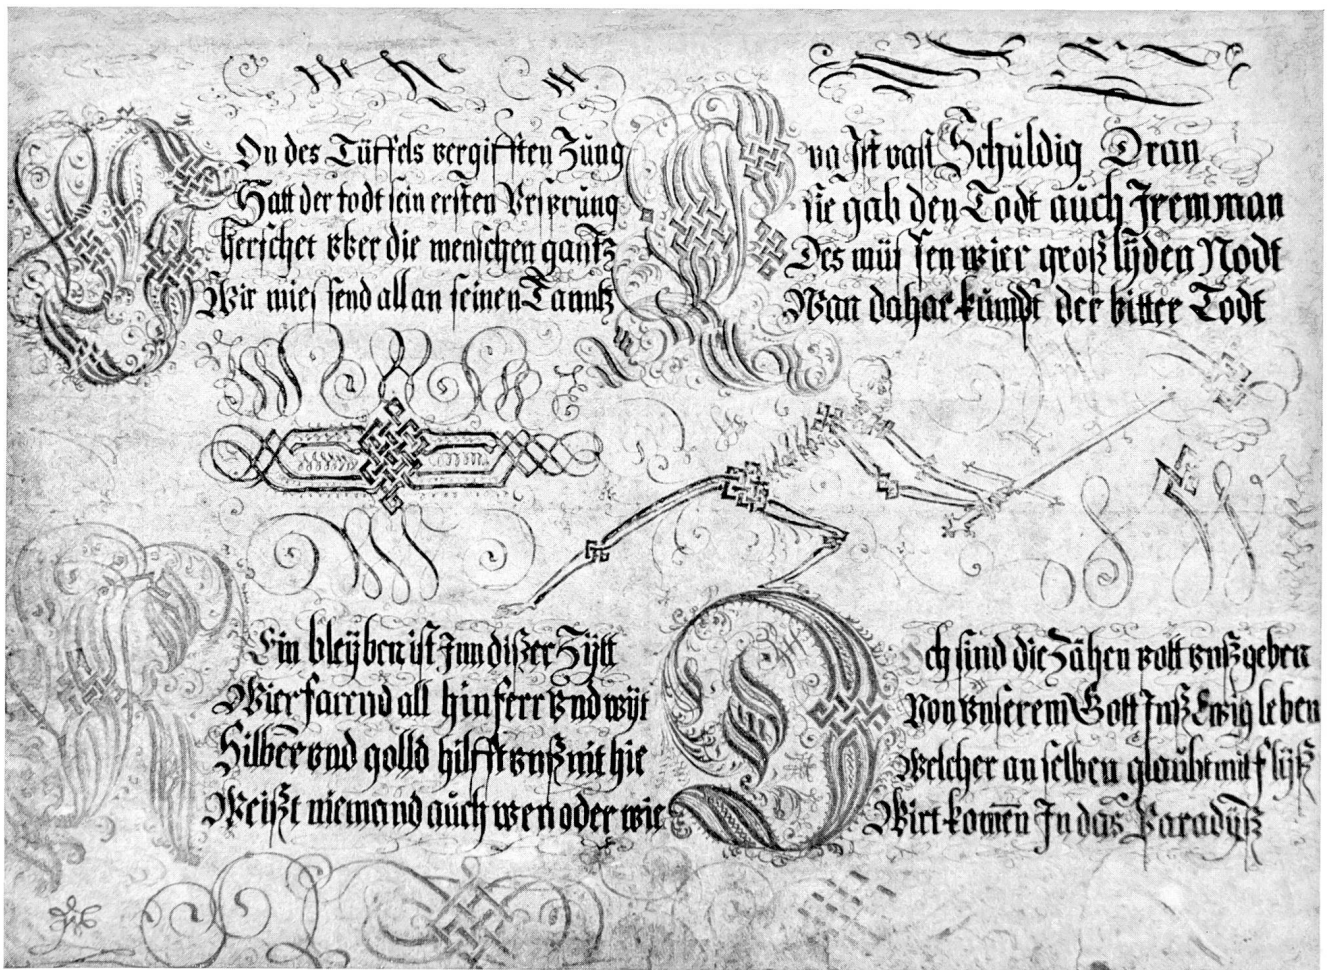 Von des Tüffels vergifften Zung
Hatt der todt sein ersten Vrsprung
herschet vber die menschen gantz
Wir miessend all an seinen Tanntz
Eva Ist vast Schuldig Dran
sie gab den Todt auch Irem man
Des müssen wier groß lÿden Nodt
Wan dahar kumpt der bitter Todt
Kein bleÿben ist Inn dißer Zÿtt
Wier farend all hin ferr vnd wÿt
Silber vnd golld hilfft vnß nit hie
Weißt niemand auch wen oder wie
Doch sind die Zähen bott vnß geben
Von vnserem Gott Inß Ewig leben
Welcher an selben glaubt mit flÿß
Wirt komen̄ In das Paradÿß